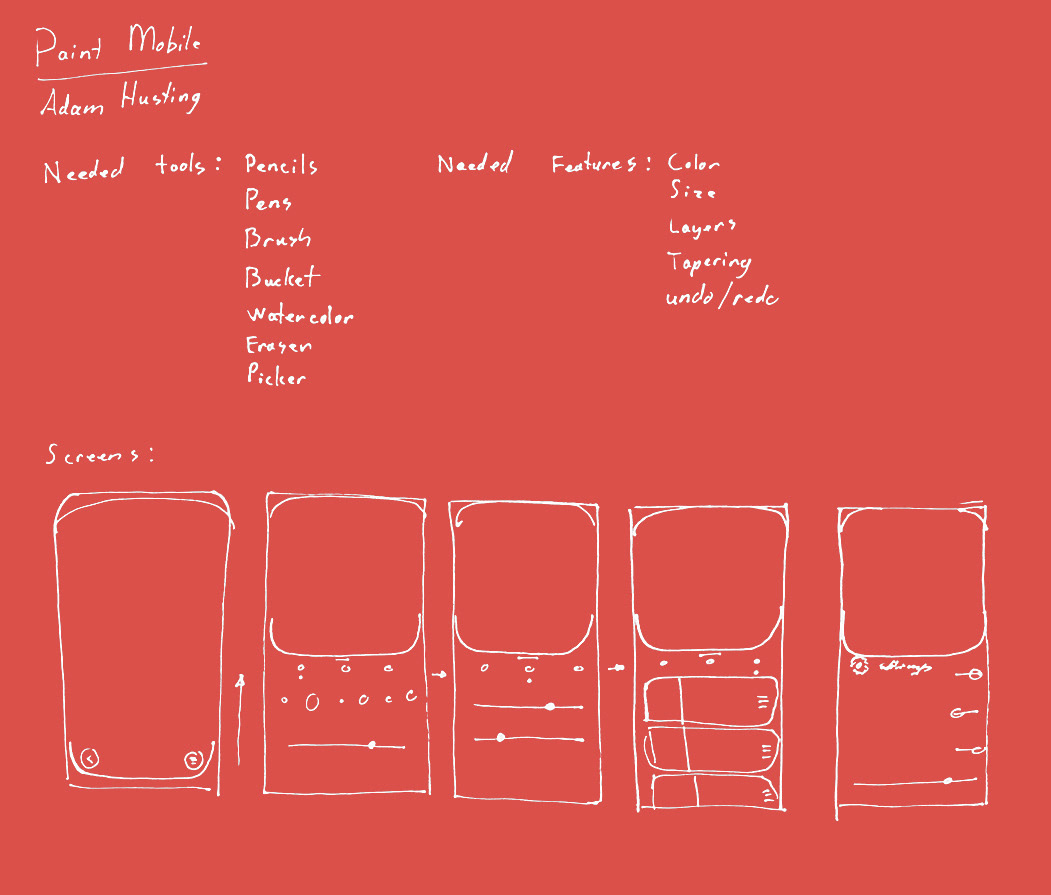 Paint Mobile
Adam Husting
Needed tools: Pencils
Pens
Brush
Bucket
Watercolor
Eraser
Picker
Needed Features: Color
Size
Layers
Tapering
undo/redo
Screens:
settings